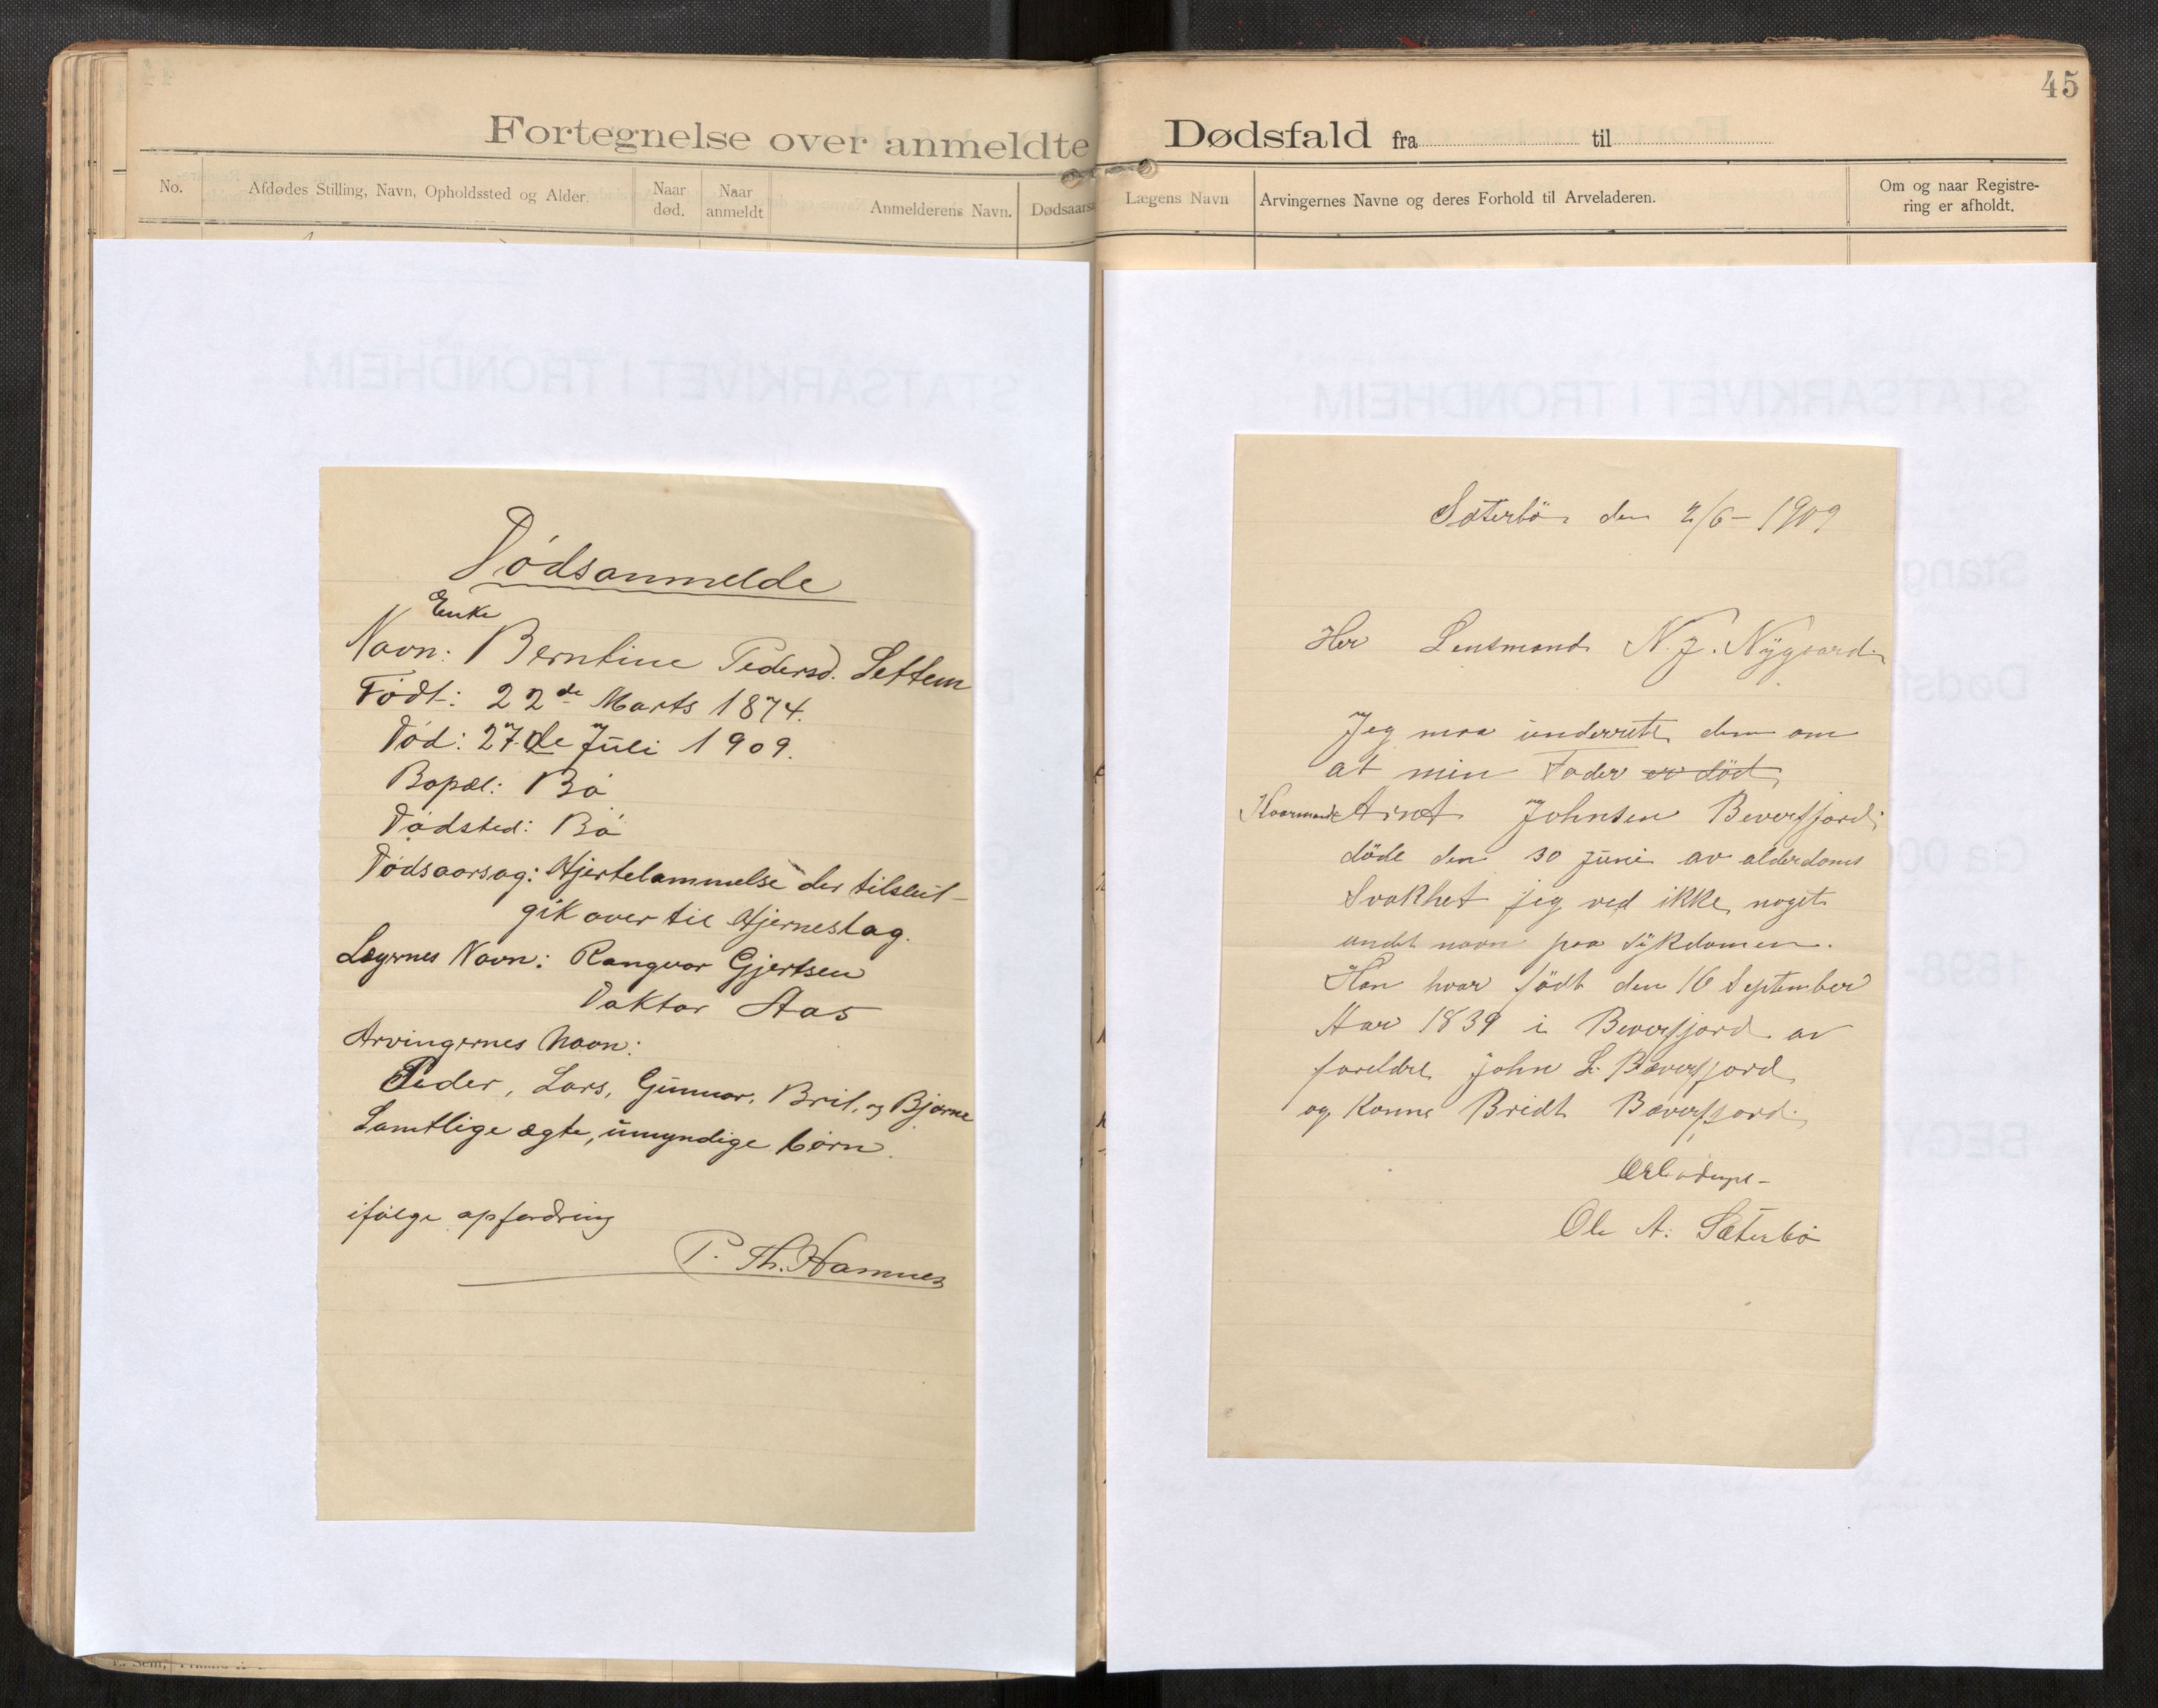 45
Fortegnelse over anmeldte Dødsfald fra til
No.
Afdødes Stilling, Navn, Opholdssted og Alder.
Naar død.
Naar anmeldt
Anmelderens Navn.
Dødsaarsa
Lægens Navn
Arvingernes Navne og deres Forhold til Arveladeren.
Om og naar Registre-
ring er afholdt.
STATSARKIVET I TRONDHEIM
Dødsanmelde
Enke
Navn: Berntine Pedersd. Settem
Födt: 22de Marts 1874.
Död: 27de Juli 1909.
Bopæl: Bö
Dödsted: Bö
Dödsaarsag: Hjertelammelse der tilslut-
gik over til Hjerneslag.
Lægernes Navn: Rangvar Gjertsen
Doktor Aas
Arvingernes Navn:
Peder, Lars, Gunnar, Brit, og Bjarne
Samtlige ægte, umyndige börn.
ifölge opfordring
P. Th. Hamnes
STATSARKIVET I TRONDHEIM
Sæterbö den 2/6-1909
Her Lensmand N. J. Nygaard
Jeg maa underrette dem om
at min Fader er död
Kaarmand Arnt Johnsen Beverfjord
döde den 30 Juni av alderdoms
Svakhet jeg ved ikke noget
andet navn paa sykdomen.
Han hvar födt den 16 September
Aar 1839 i Beverfjord av
foreldre John L. Bæverfjord
og Kone Bridt Bæverfjord
Ærbödigst
Ole A. Sæterbö